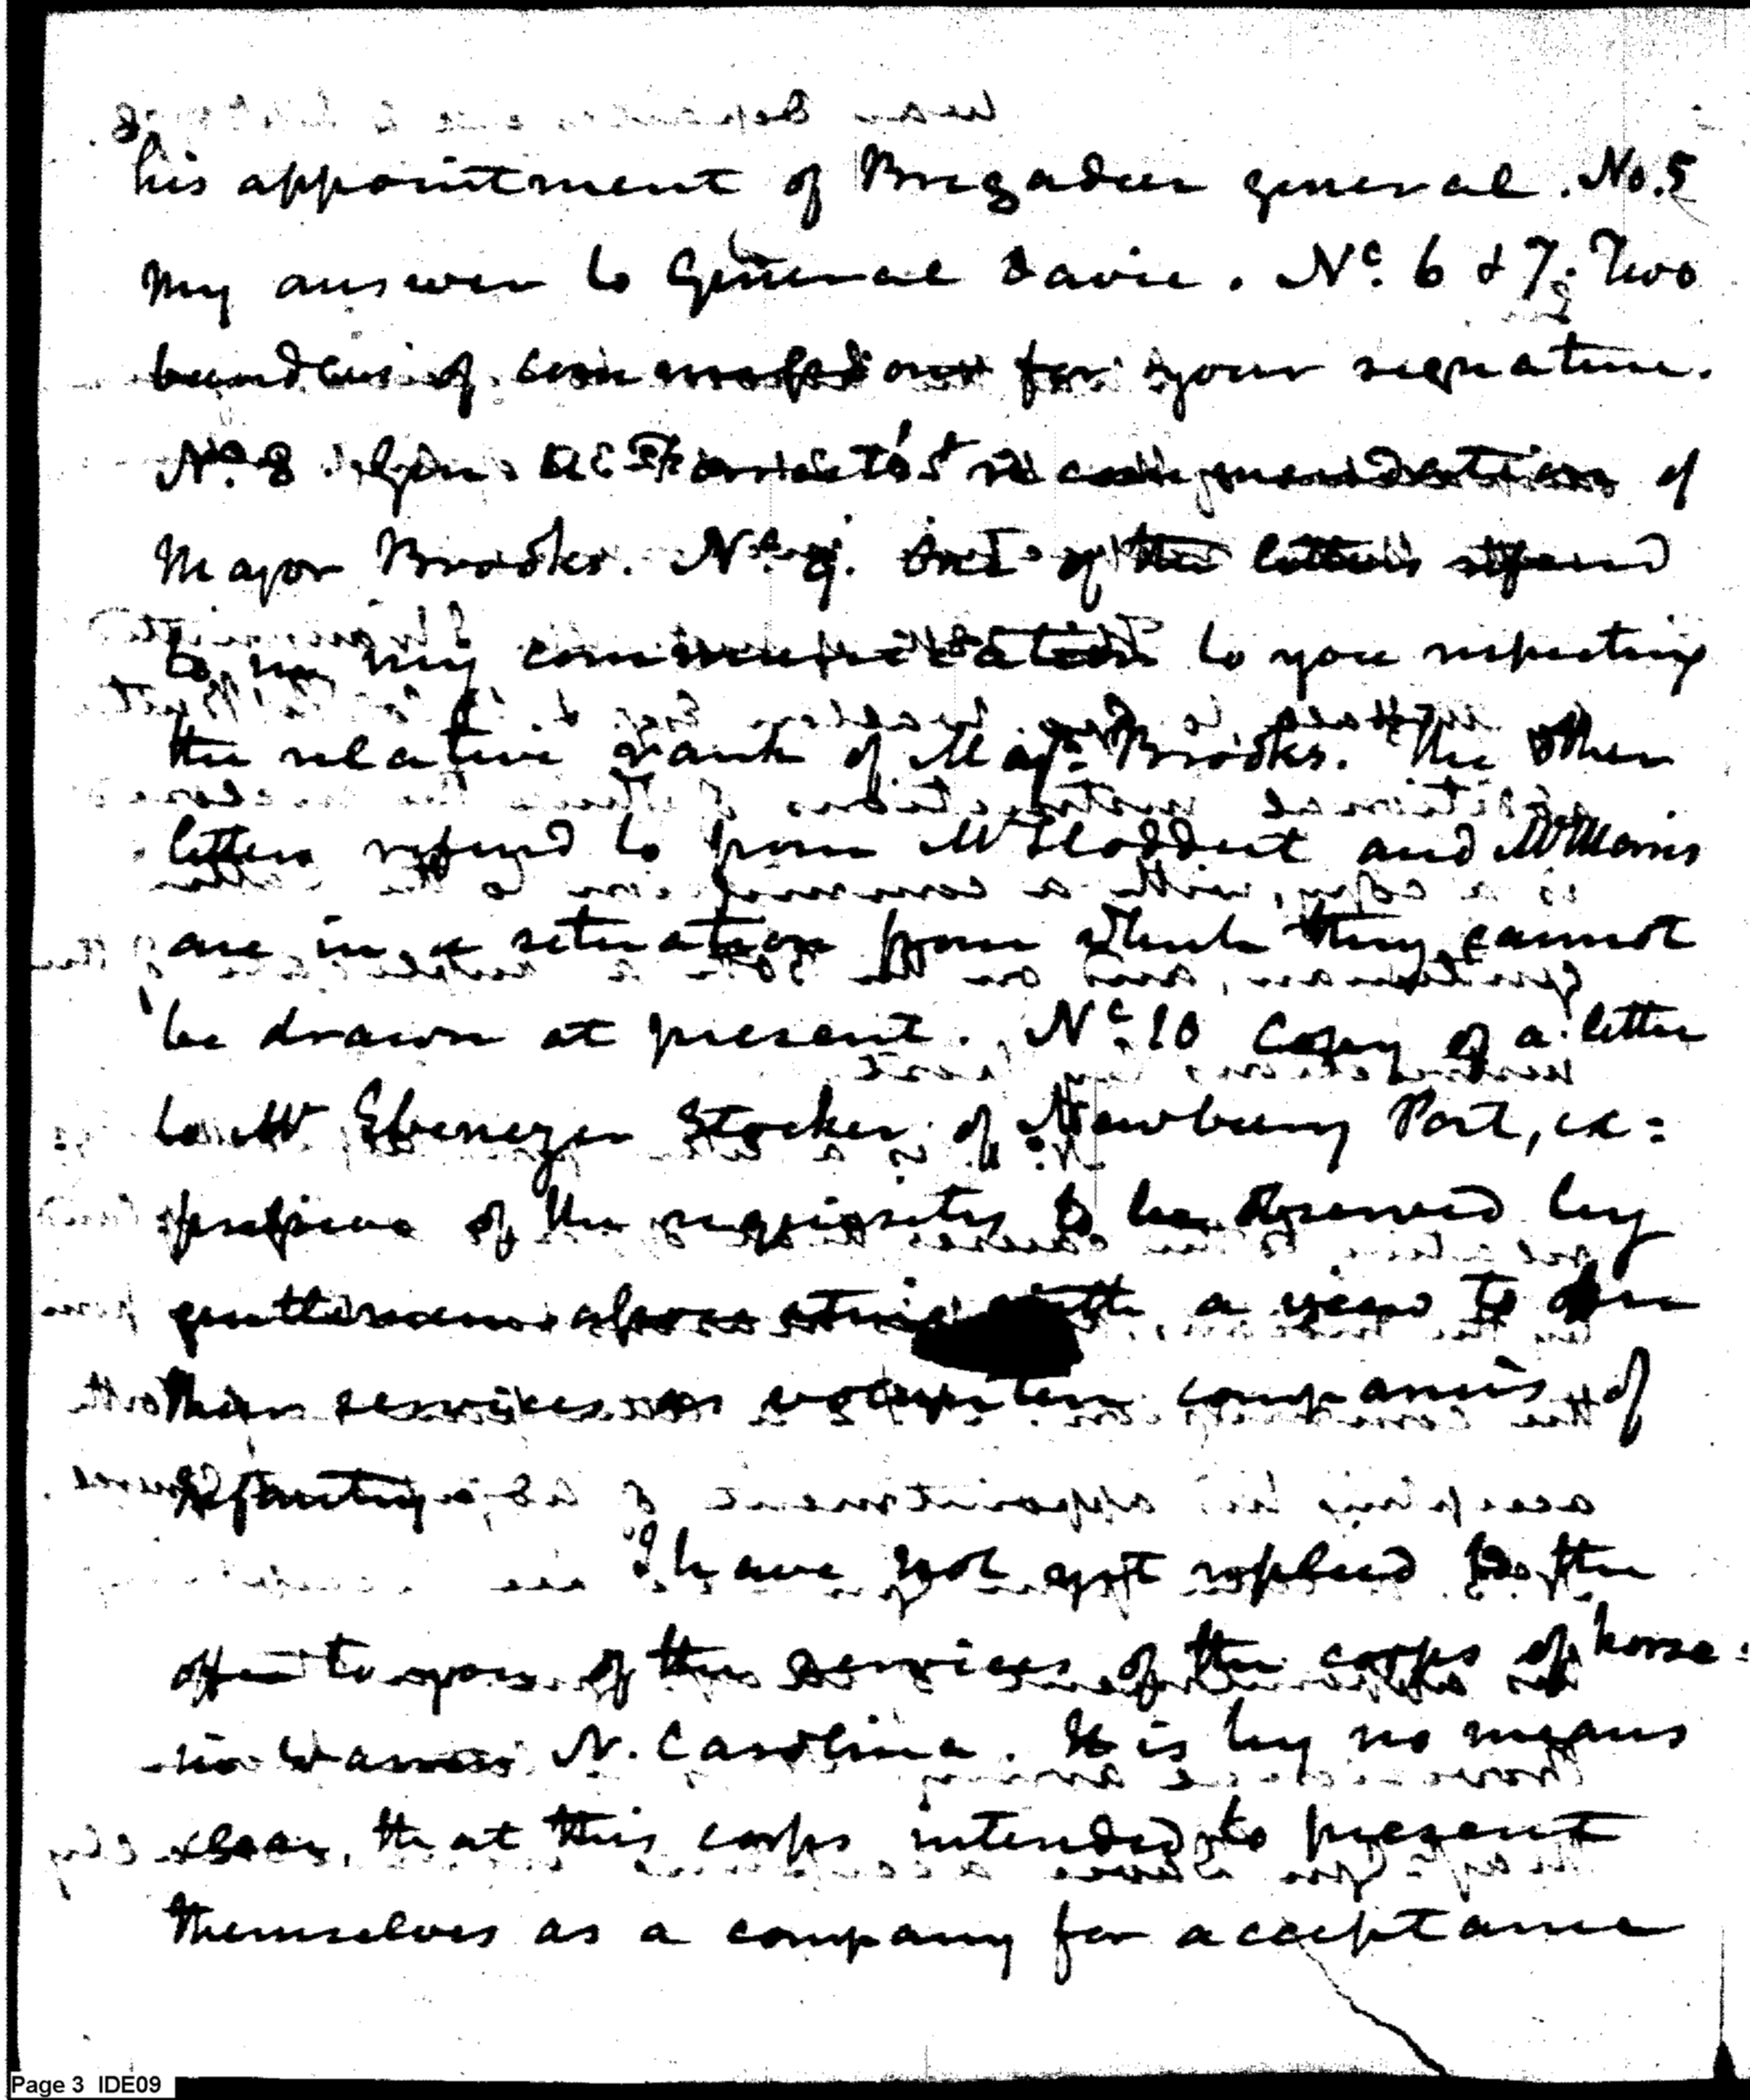 his appointment of Brigadier general. No. 5
My answer to General Davie. No. 6 & 7. Two
bundles of commissions for your signature.
No. 8 recommendation of
Major Brooks. No. 9. One of the letters referd
to in my communication to you respecting
the relative rank of Majr. Brooks. The other
letters referred to from Mr Stoddert and Mr Morris
are in a situation from which they cannot
be drawn at present. No. 10 Copy of a letter
to Mr Ebenezer Stocker of Newbury Port, ex=
pressive of the requisites to be observed by
gentlemen associating with a view to
their services as volunteer companies of
Infantry.
I have not yet replied to the
offer to you of the services of the corps of horse
in Warren N. Carolina. It is by no means
clear, that this corps intended to present
themselves as a company for acceptance
Page 3 IDE09